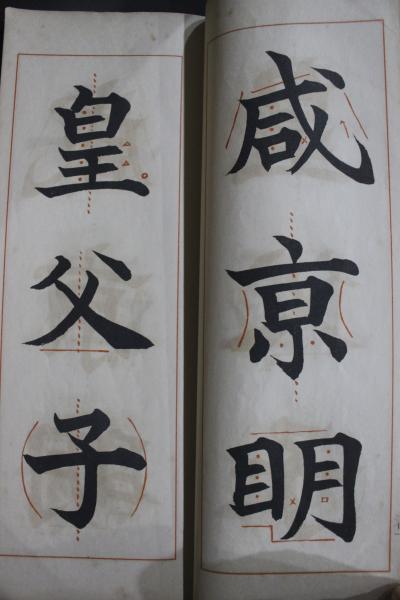 咸京眀
皇父子